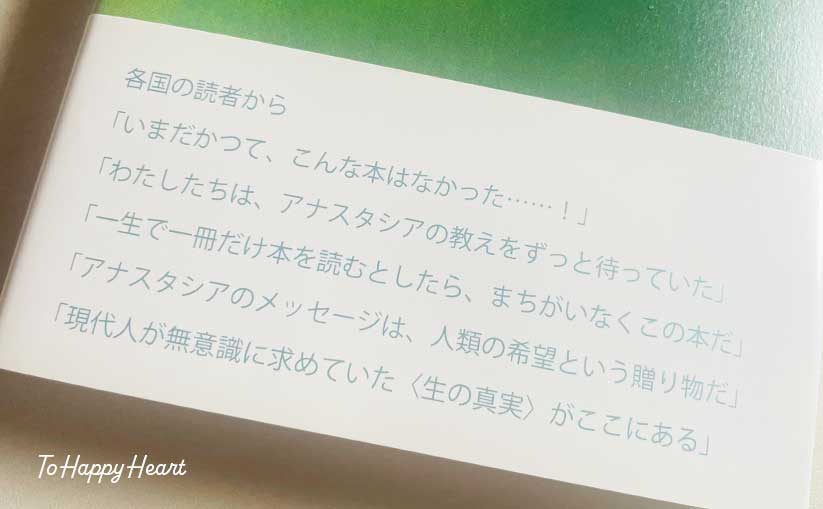 各国の読者から
「いまだかつて、こんな本はなかった……！」
「わたしたちは、アナスタシアの教えをずっと待っていた」
「一生で一冊だけ本を読むとしたら、まちがいなくこの本だ」
「アナスタシアのメッセージは、人類の希望という贈り物だ」
「現代人が無意識に求めていた〈生の真実〉がここにある」
To Happy Heart